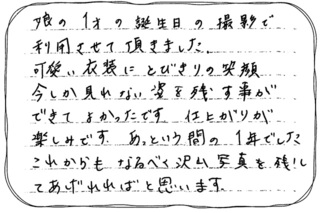 娘の1才の誕生日の撮影で
利用させて頂きました。
可愛い衣装にとびきりの笑顔
今しか見れない姿を残す事が
できてよかったです 仕上がりが
楽しみです あっという間の1年でした
これからもなるべく沢山写真を残し
てあげれればと思います。